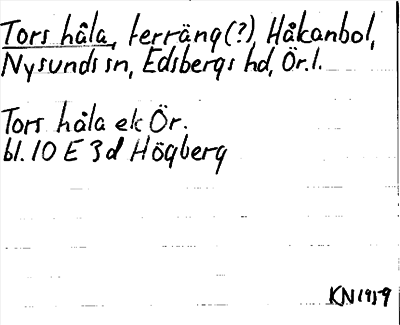 Tors håla, terräng(?), Håkanbol,
Nysunds sn, Edsbergs hd, Ör.l.
Tors håla ek Ör.
bl. 10 E 3 d Högberg
KN 1959